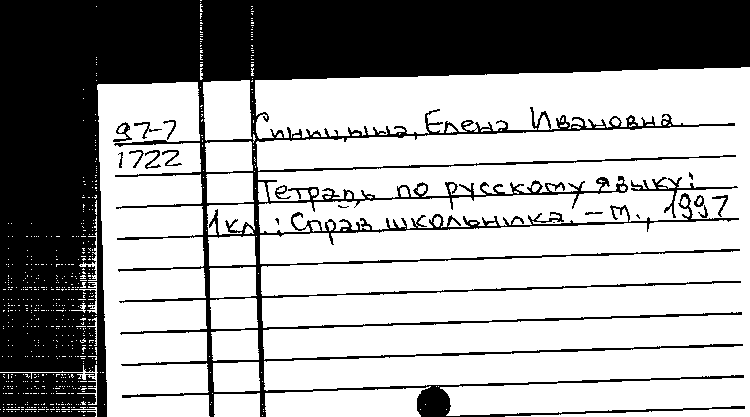 97-7 Синицына, Елена Ивановна.
1722
Тетрадь по русскому языку:
1кл.: Справ школьника. – М., 1997